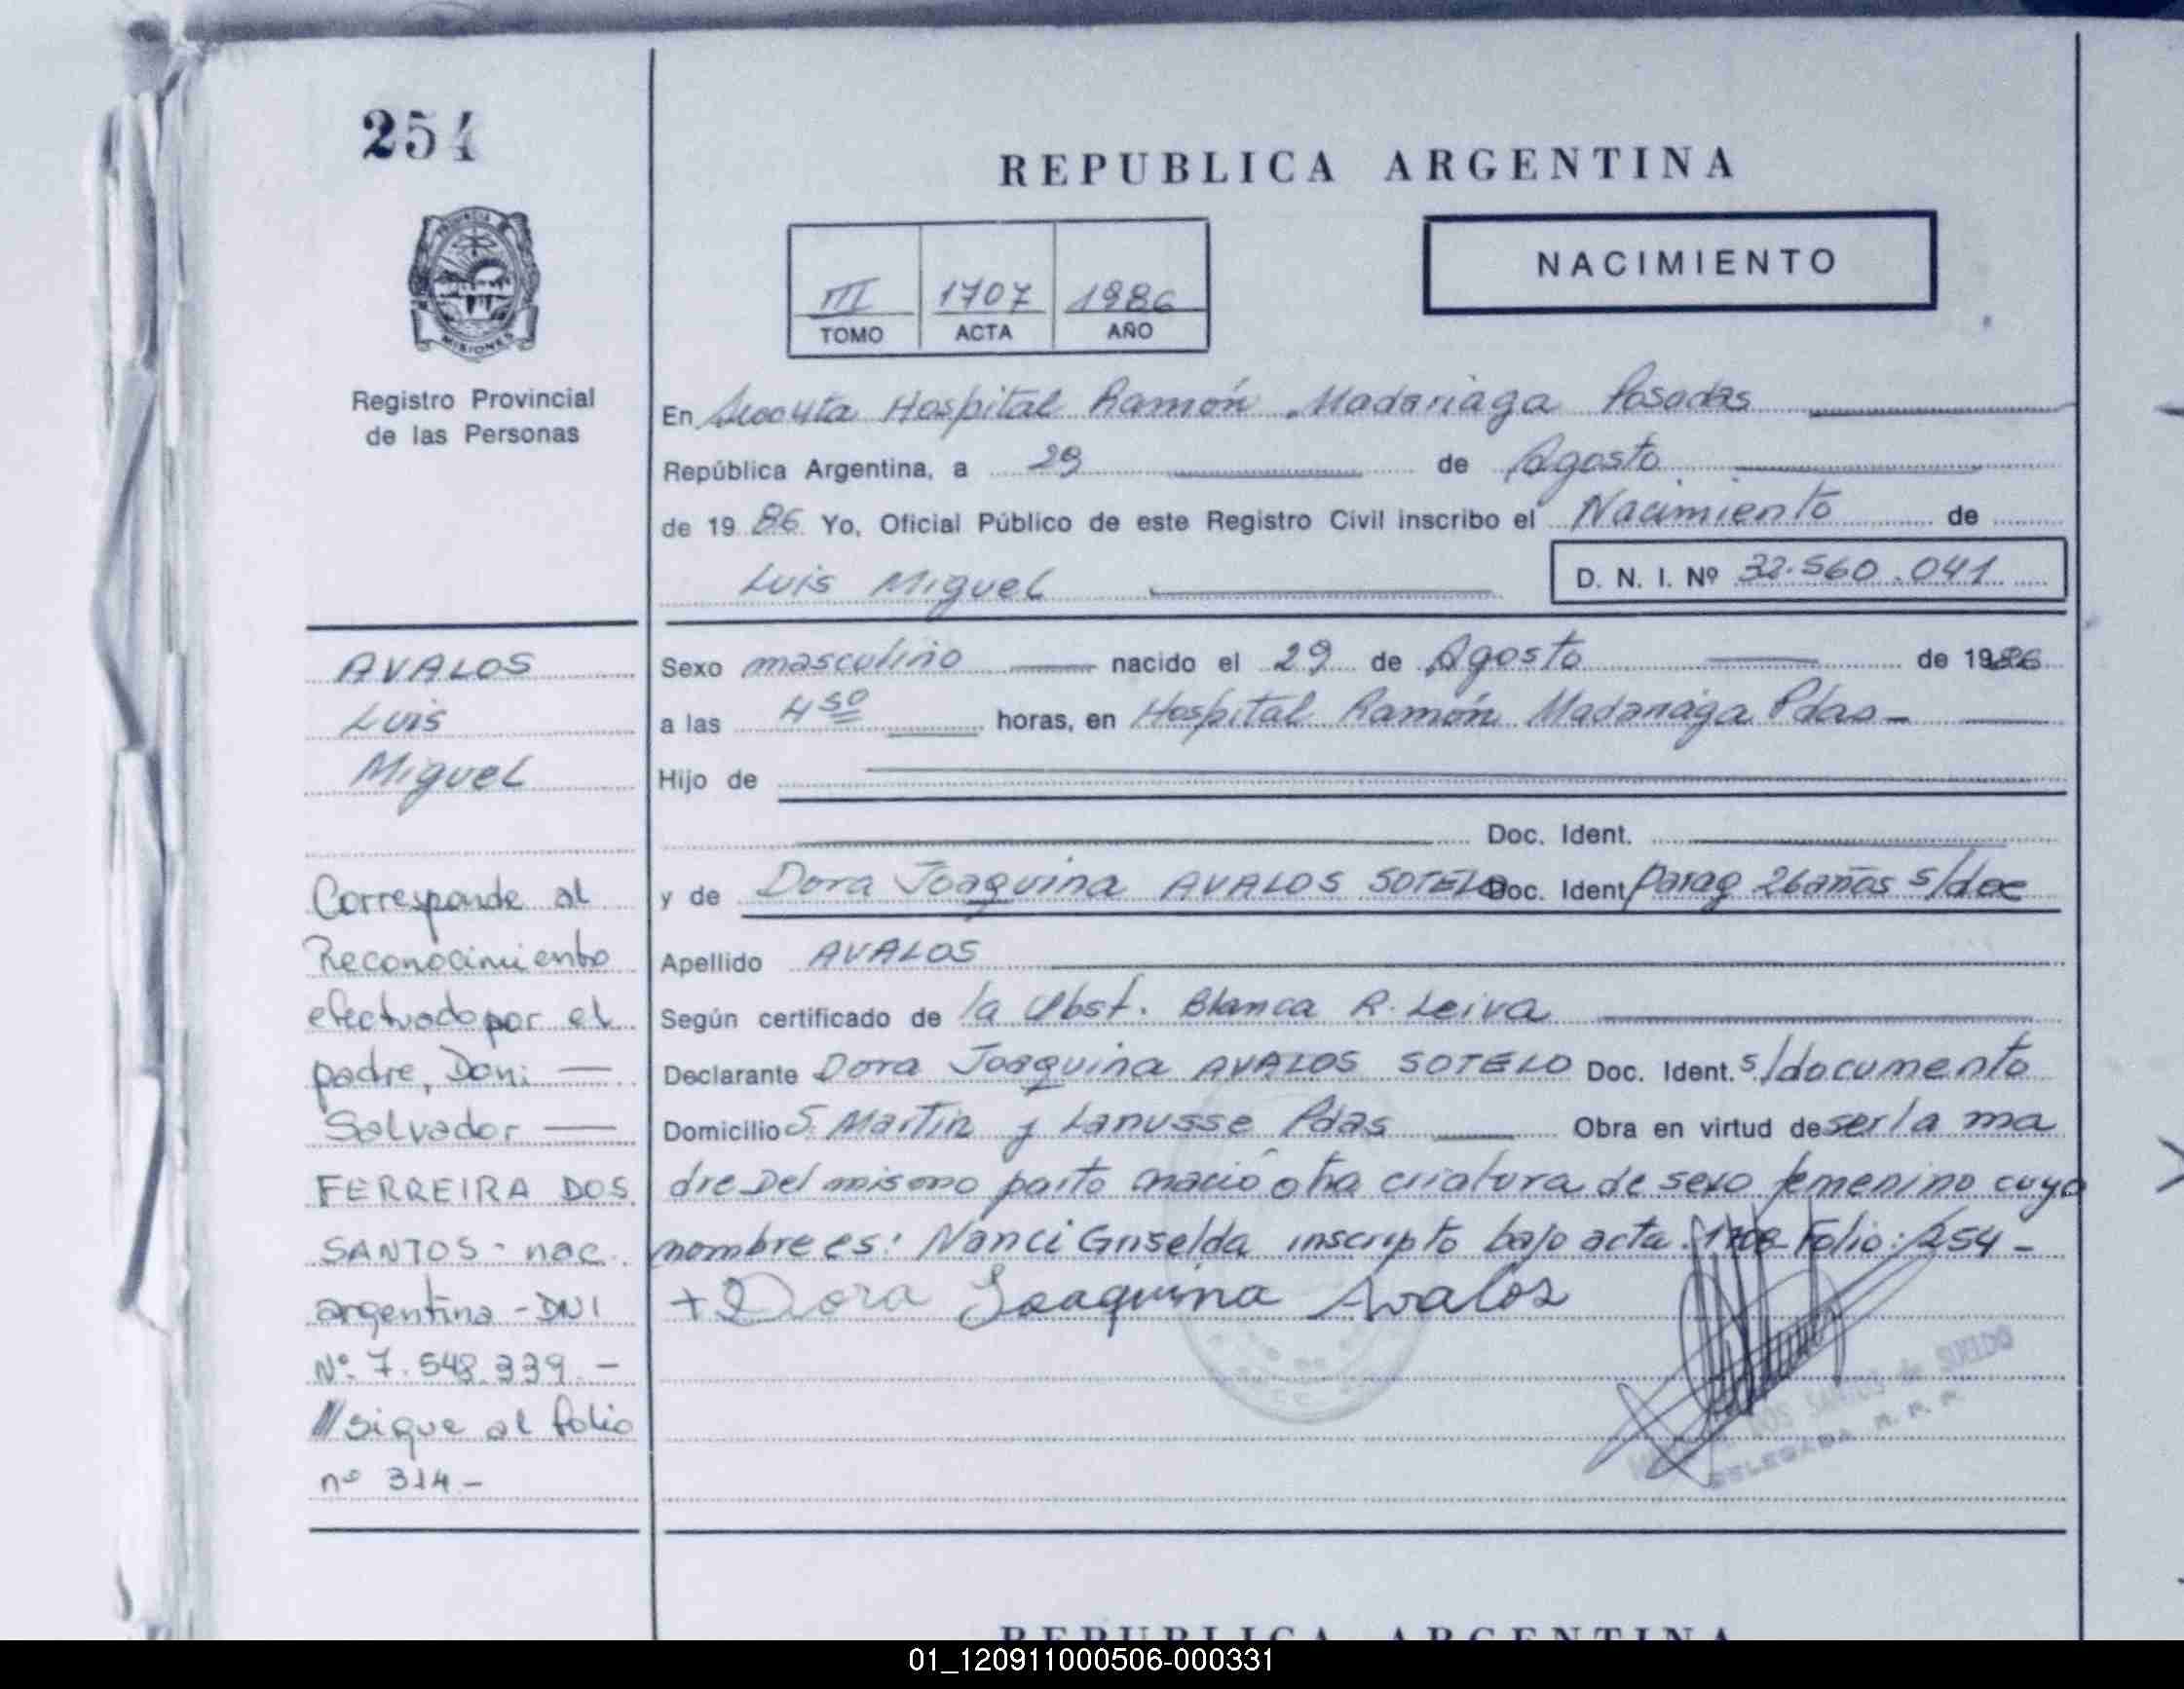 254
REPUBLICA ARGENTINA
NACIMIENTO
III 1707 1986
TOMO ACTA AÑO
PROVINCIA
MISIONES
Registro Provincial
de las Personas
En Hospital Ramón Madariaga Posadas
República Argentina, a 29 de Agosto
de 19 86 Yo, Oficial Público de este Registro Civil inscribo el Nacimiento de
Luis Miguel D. N. I. Nº 32.560.041
AVALOS
Luis
Miguel
Corresponde al
Reconocimiento
efectuado por el
padre, Doni
Salvador
FERREIRA DOS
SANTOS - nac.
argentina - DNI
Nº 7.548.339 -
// sigue al folio
nº 314 -
Sexo masculino nacido el 29 de Agosto de 1986
a las 4 50 horas, en Hospital Ramón Madariaga Pdas -
Hijo de
Doc. Ident.
y de Dora Joaquina AVALOS SOTELO Doc. Ident parag 26 años s/doc
Apellido AVALOS
Según certificado de la Obst. Blanca R. Leiva
Declarante Dora Joaquina AVALOS SOTELO Doc. Ident. s/documento
Domicilio S. Martin y Lanusse Pdas Obra en virtud de ser la ma
dre Del mismo parto nació otra criatura de sexo femenino cuyo
nombre es: Nanci Griselda inscripto bajo acta 1708 Folio: 254 -
+ Dora Joaquina Avalos
DOS SANTOS de SUELDO
DELEGADA R. P. P.
REPUBLICA ARGENTINA
01_120911000506-000331